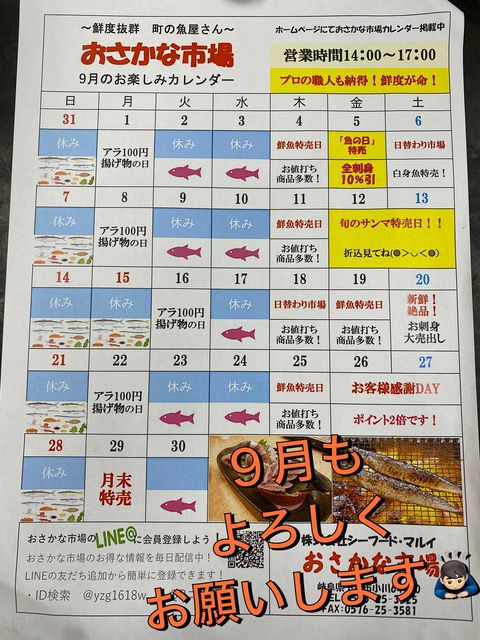 ～鮮度抜群 町の魚屋さん～
おさかな市場
9月のお楽しみカレンダー
ホームページにておさかな市場カレンダー掲載中
営業時間14：00～17：00
プロの職人も納得！鮮度が命！
日 月 火 水 木 金 土
31 1 2 3 4 5 6
休み
アラ100円
揚げ物の日
休み
休み
鮮魚特売日
お値打ち
商品多数！
「魚の日」
特売
全刺身
10％引
日替わり市場
白身魚特売！
7 8 9 10 11 12 13
休み
アラ100円
揚げ物の日
休み
休み
鮮魚特売日
お値打ち
商品多数！
旬のサンマ特売日！！
折込見てね(◎＞◡＜◎)
14 15 16 17 18 19 20
休み
休み
アラ100円
揚げ物の日
休み
日替わり市場
お値打ち
商品多数！
鮮魚特売日
お値打ち
商品多数！
新鮮！
絶品！
お刺身
大売出し
21 22 23 24 25 26 27
休み
アラ100円
揚げ物の日
休み
休み
鮮魚特売日
お値打ち
商品多数！
お客様感謝DAY
ポイント2倍です！
28 29 30
休み
月末
特売
休み
９月も
よろしく
お願いします🙇🏻‍♂️
おさかな市場のLINE@に会員登録しよう！
おさかな市場のお得な情報を毎日配信中！
LINEの友だち追加から簡単に登録できます！
・ID検索 @yzg1618w
シーフード・マルイ
おさかな市場
FAX 0576-25-3581